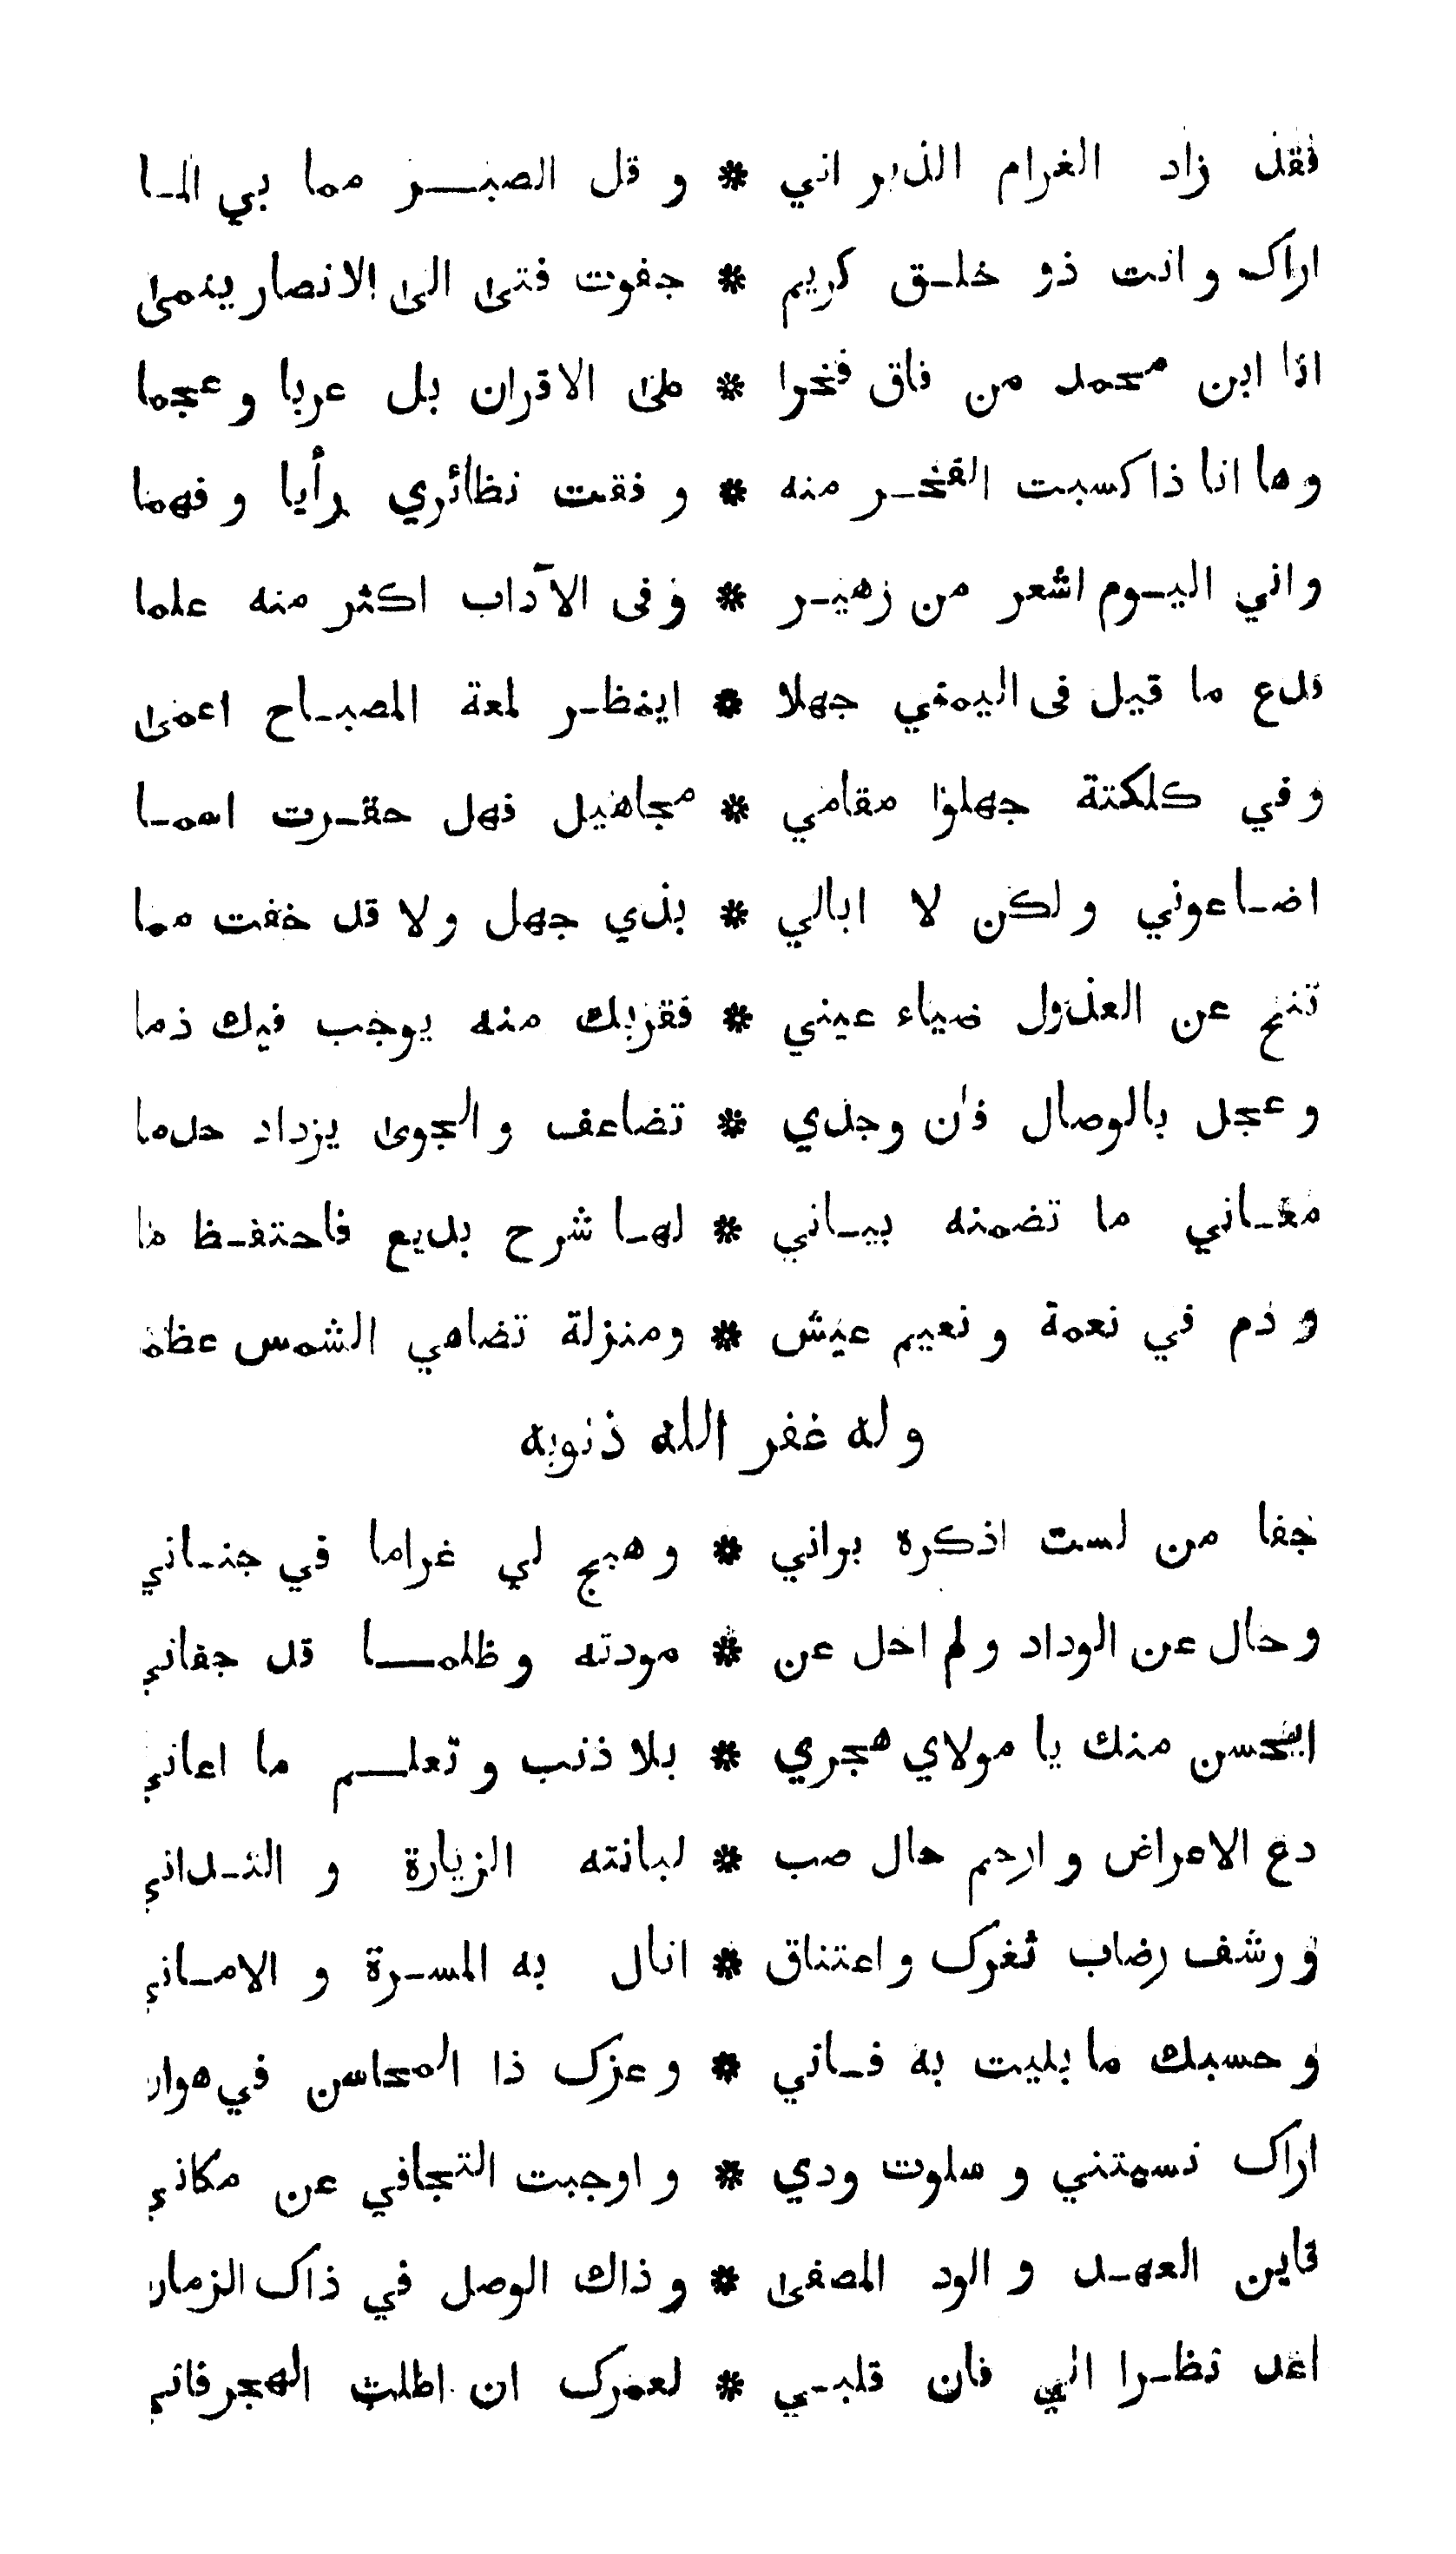 فقد زاد الغرام الذبر اني * و قل الصبر مما بي الما
اراك و انت ذو خلق كريم * جفوت فتى الى الانصار ينمى
انا ابن محمد من فاق فخرا * على الاقران بل عربا و عجما
و ها انا ذا كسبت الفخر منه * و فقت نظائري رأيا و فهما
و اني اليوم اشعر من زهير * و فى الآداب اكثر منه علما
فدع ما قيل فى اليمني جهلا * اينظر لمعة المصباح اعمى
و في كلكتة جهلوا مقامي * مجاهيل فهل حقرت اسما
اضاعوني و لكن لا ابالي * بذي جهل و لا قد خفت مما
تنح عن العذول ضياء عيني * فقربك منه يوجب فيك ذما
و عجل بالوصال فان وجدي * تضاعف و الجوى يزداد حدما
مغاني ما تضمنه بياني * لها شرح بديع فاحتفظ ما
و دم في نعمة و نعيم عيش * ومنزلة تضاهي الشمس عظما
و له غفر الله ذنوبه
جفا من لست اذكره براني * و هيج لي غراما في جناني
و حال عن الوداد و لم احل عن * مودته و ظلما قد جفاني
ايحسن منك يا مولاي هجري * بلا ذنب و تعلم ما اعاني
دع الاعراض و ارحم حال صب * لبانته الزيارة و التداني
و رشف رضاب ثغرك و اعتناق * انال به المسرة و الاماني
و حسبك ما بليت به فاني * و عزك ذا المحاسن في هوان
اراك نسيتني و سلوت ودي * و اوجبت التجافي عن مكاني
فاين العهد و الود المصفى * و ذاك الوصل في ذاك الزمان
اعد نظرا الي فان قلبي * لعمرك ان اطلت الهجر فاني